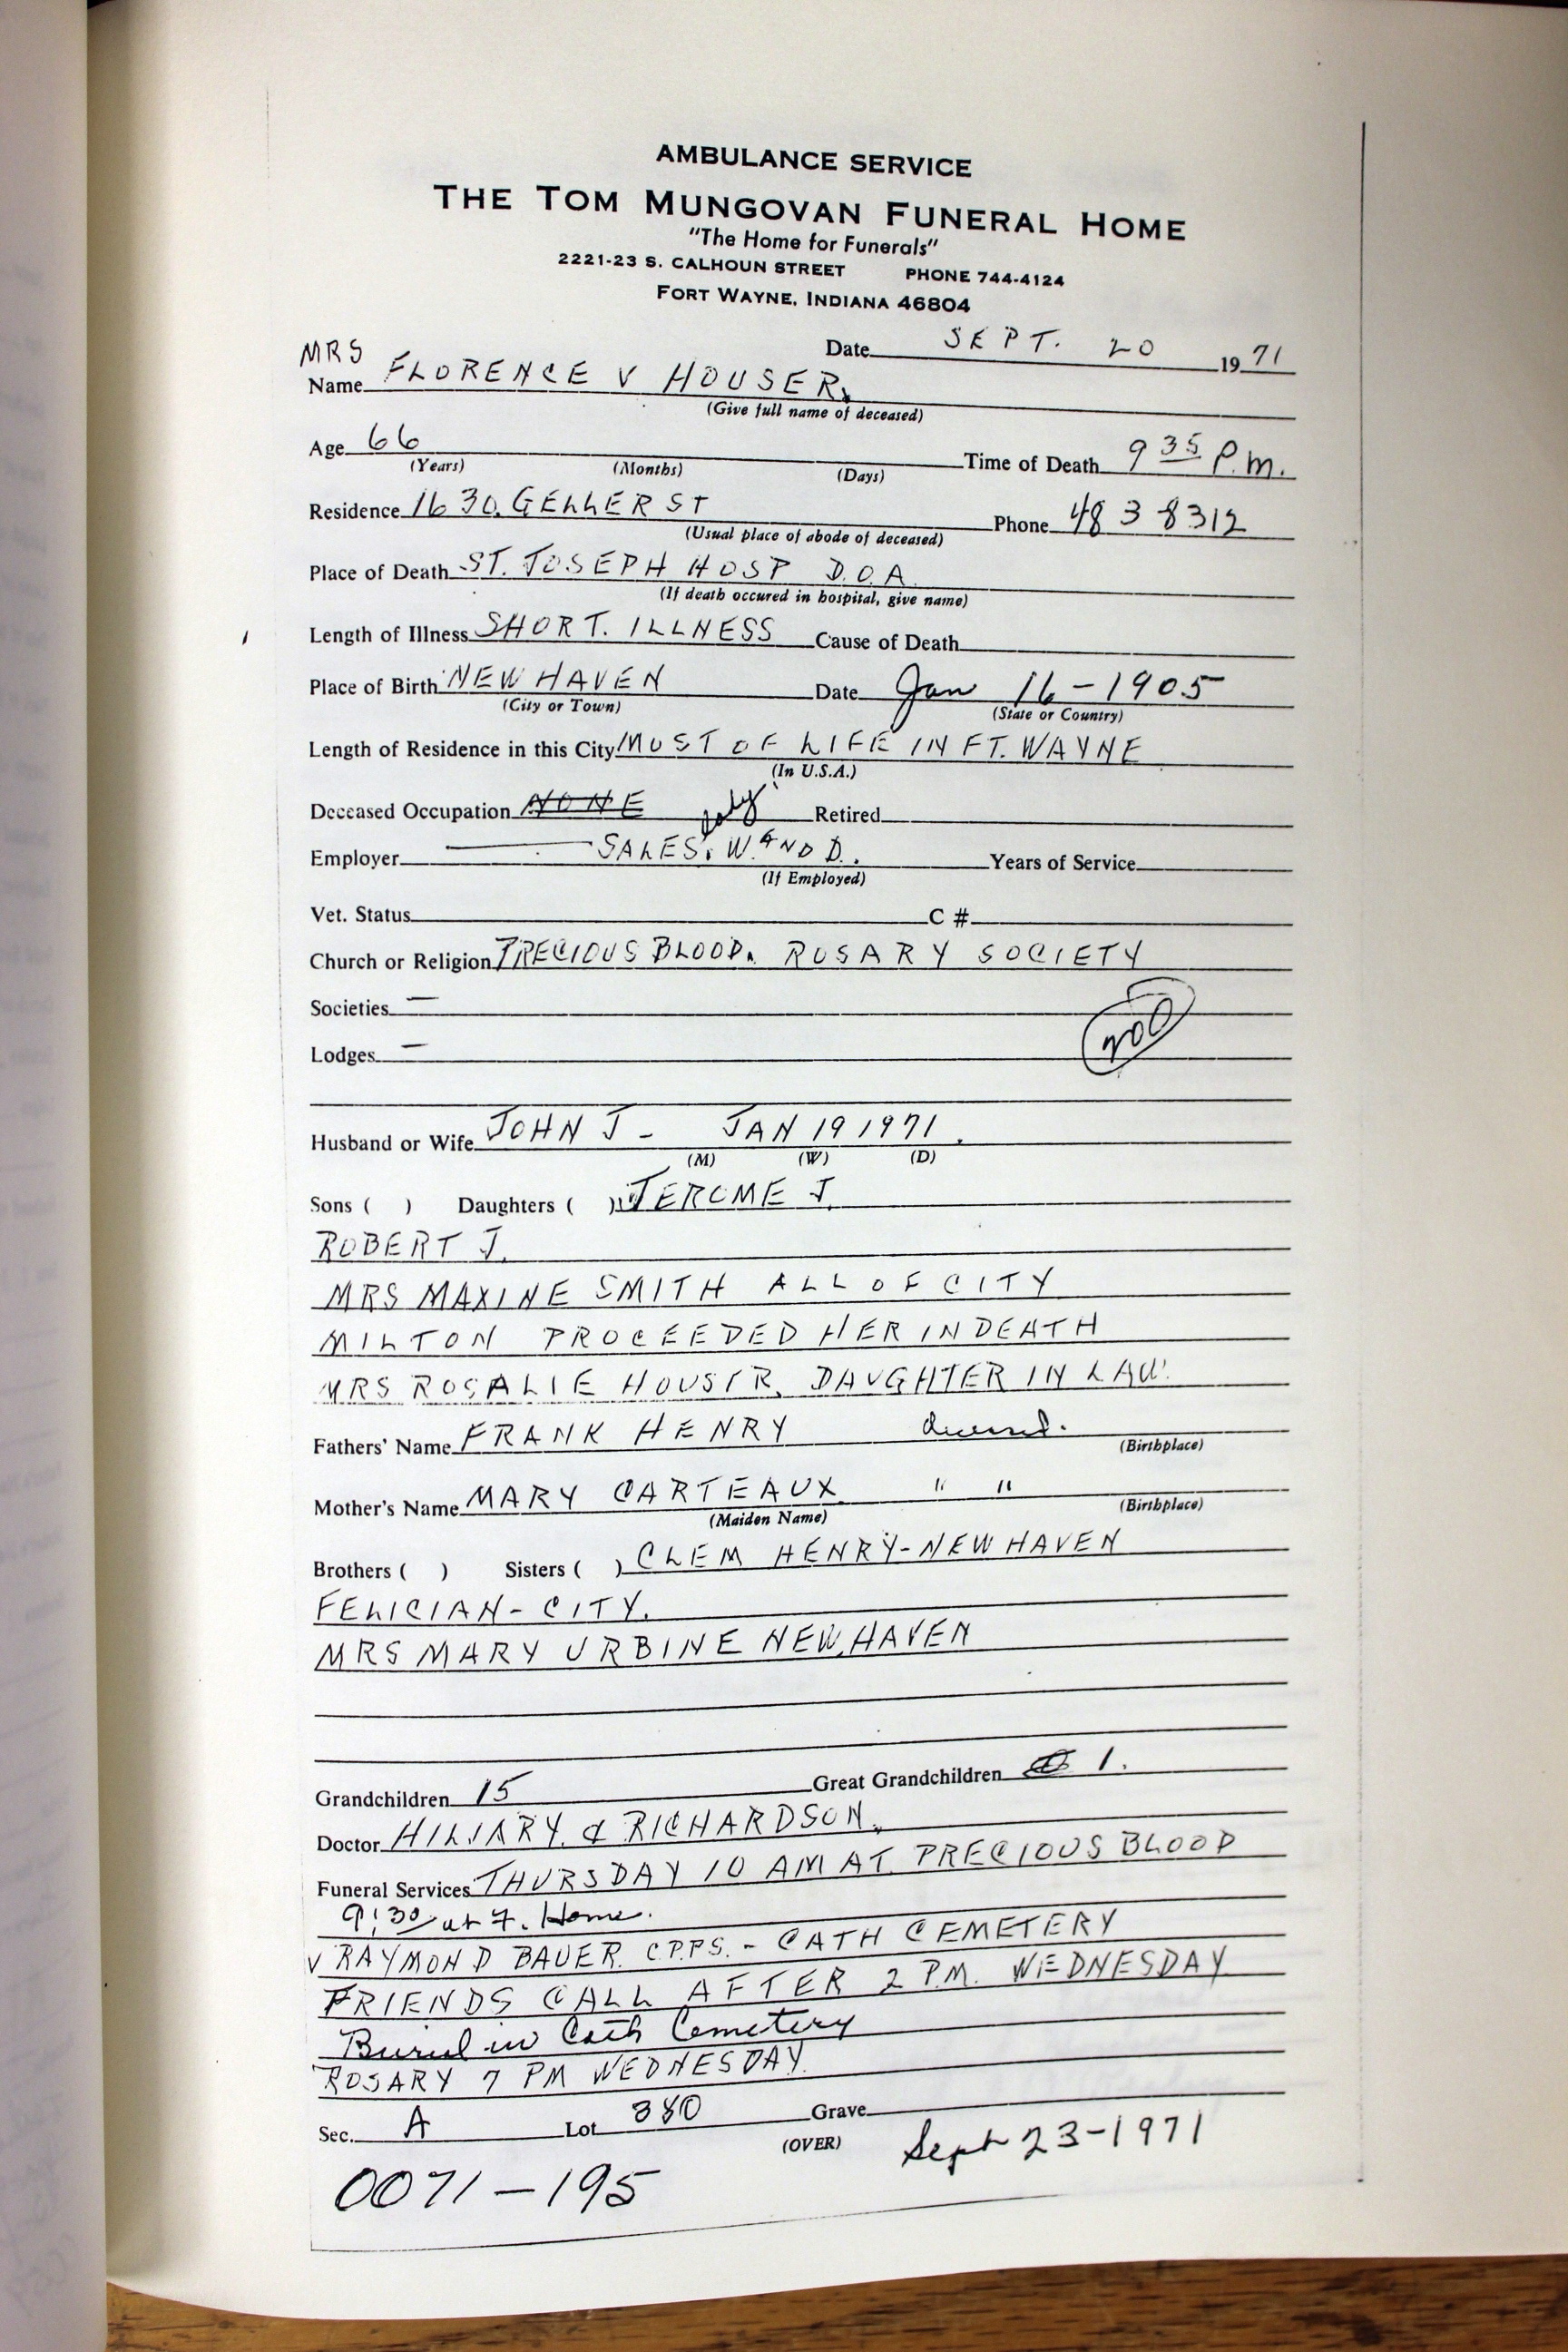 AMBULANCE SERVICE
THE TOM MUNGOVAN FUNERAL HOME
"The Home for Funerals"
2221-23 S. CALHOUN STREET PHONE 744-4124
FORT WAYNE, INDIANA 46804
Date SEPT. 20 1971
MRS
Name FLORENCE V HOUSER.
(Give full name of deceased)
Age 66 Time of Death 9 35 P.M.
(Years) (Months) (Days)
Residence 1630. GELLER ST Phone 483 8312
(Usual place of abode of deceased)
Place of Death ST. JOSEPH HOSP D.O.A.
(If death occured in hospital, give name)
Length of Illness SHORT. ILLNESS Cause of Death
Place of Birth NEW HAVEN Date Jan 16-1905
(City or Town) (State or Country)
Length of Residence in this City MOST OF LIFE IN FT. WAYNE
(In U.S.A.)
Deceased Occupation NONE Retired
Employer SALES. W AND D. Years of Service
(If Employed)
Vet. Status C #
Church or Religion PRECIOUS BLOOD. ROSARY SOCIETY
Societies —
Lodges —
200
Husband or Wife JOHN J - JAN 19 1971.
(M) (W) (D)
Sons ( ) Daughters ( ) JEROME J.
ROBERT J.
MRS MAXINE SMITH ALL OF CITY
MILTON PROCEEDED HER IN DEATH
MRS ROSALIE HOUSER. DAUGHTER IN LAW.
Fathers' Name FRANK HENRY deceased.
(Birthplace)
Mother's Name MARY CARTEAUX " "
(Maiden Name) (Birthplace)
Brothers ( ) Sisters ( ) CLEM HENRY-NEW HAVEN
FELICIAN-CITY.
MRS MARY URBINE NEW HAVEN
Grandchildren 15 Great Grandchildren 0 1.
Doctor HILLARY. & RICHARDSON.
Funeral Services THURSDAY 10 AM AT. PRECIOUS BLOOD
9:30 at F. Home.
V RAYMOND BAUER. C.PP.S. - CATH CEMETERY
FRIENDS CALL AFTER 2 P.M. WEDNESDAY
Burial in Cath Cemetery
ROSARY 7 PM WEDNESDAY.
Sec. A Lot 380 Grave
(OVER) Sept 23-1971
0071-195